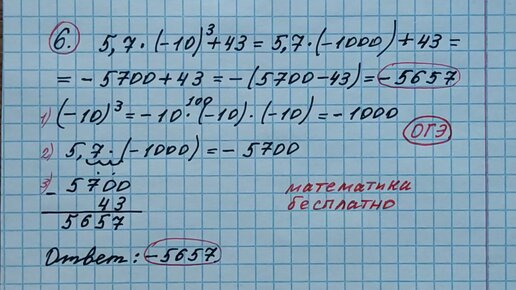 6. 5,7 · (-10)³ + 43 = 5,7 · (-1000) + 43 =
= - 5700 + 43 = - (5700 - 43) = -5657
1) (-10)³ = -10 · (-10) · (-10) = -1000
100
ОГЭ
2) 5,7 · (-1000) = - 5700
3) - 5700
43
5657
математика
бесплатно
Ответ: -5657